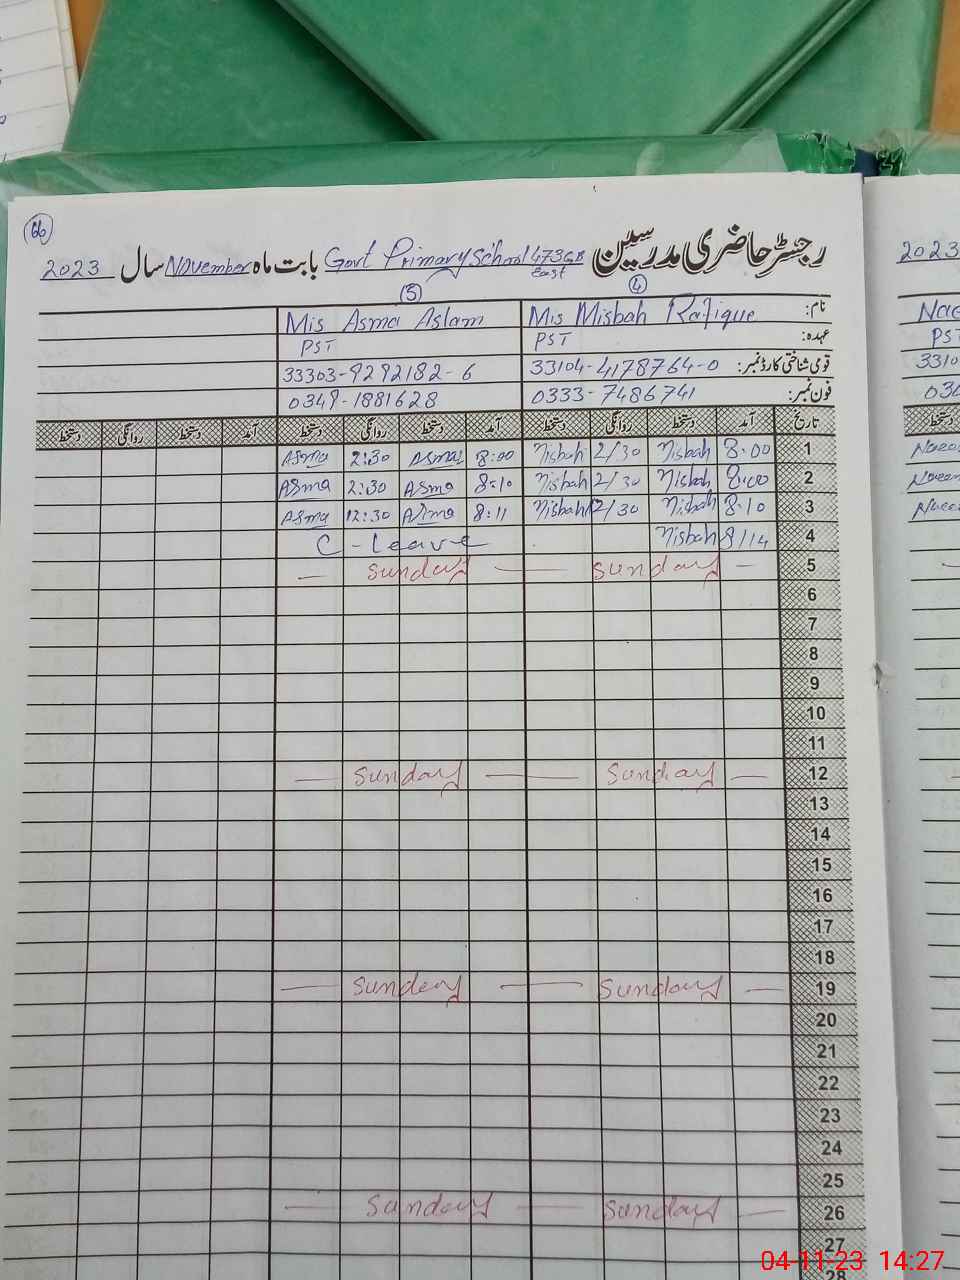 66
رجسٹر حاضری مدرسین Govt Primary School 473 GB East بابت ماہ November سال 2023
(4) (5)
نام: Mis Misbah Rafique Mis Asma Aslam
عہدہ: PST PST
قومی شناختی کارڈ نمبر: 33104-4178764-0 33303-9292182-6
فون نمبر: 0333-7486741 0349-1881628
تاریخ آمد دستخط روانگی دستخط آمد دستخط روانگی دستخط آمد دستخط روانگی دستخط
1 8:00 Misbah 2/30 Misbah 8:00 Asma 2:30 Asma
2 8:00 Misbah 2/30 Misbah 8:10 Asma 2:30 Asma
3 8:10 Misbah 12/30 Misbah 8:11 Asma 12:30 Asma
4 8/14 Misbah C-Leave
5 Sunday Sunday
6
7
8
9
10
11
12 Sunday Sunday
13
14
15
16
17
18
19 Sunday Sunday
20
21
22
23
24
25
26 Sunday Sunday
27
28
2023
PST
3310
034
04-11-23 14:27